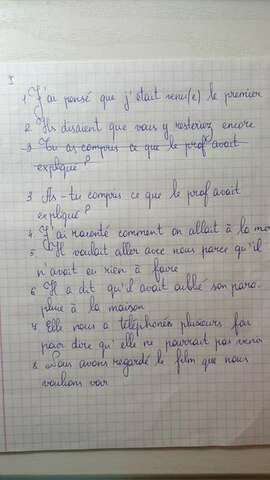 I
1. J'ai pensé que j'était venu(e) le premier
2. Ils disaient que vous y resteriez encore
3. Tu as compris ce que le prof avait
expliqué?
3 As-tu compris ce que le prof avait
expliqué?
4. J'ai raconté comment on allait à la mer
5. Il voulait aller avec nous parce qu'il
n'avait eu rien à faire
6 Il a dit qu'il avait oublié son para-
pluie à la maison
7 Elle nous a téléphonés plusieurs fois
pour dire qu'elle ne pourrait pas venir
8 Nous avons regardé le film que nous
voulions voir